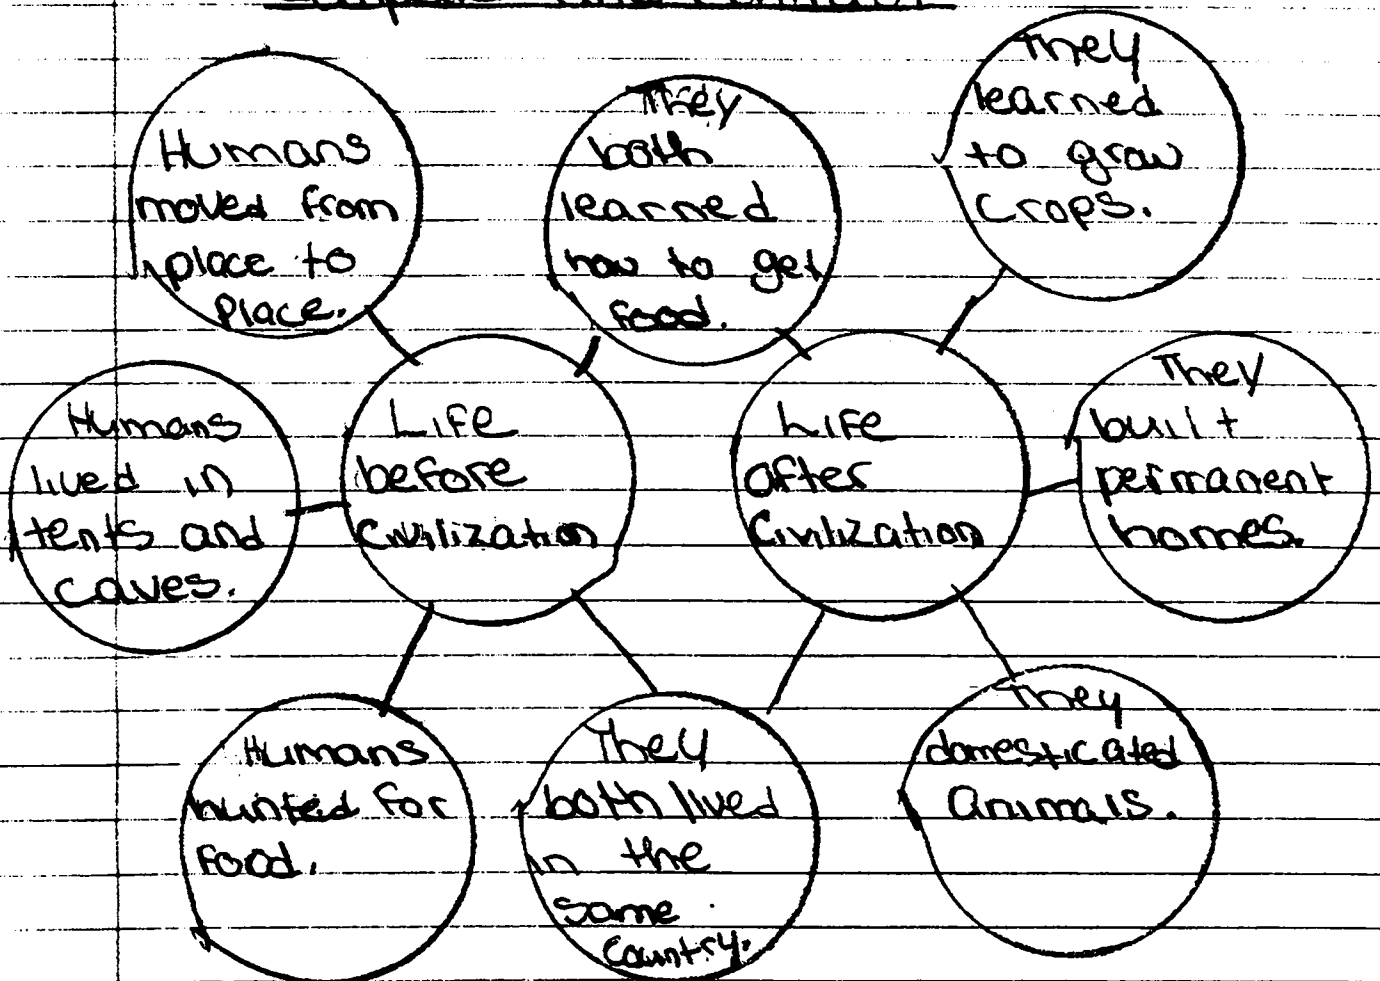 Compare and Contrast
Humans
moved from
place to
place.
They
both
learned
how to get
food.
They
learned
to grow
crops.
Humans
lived in
tents and
caves.
Life
before
civilization
Life
after
civilization
They
built
permanent
homes.
Humans
hunted for
food.
They
both lived
in the
same
country.
They
domesticated
animals.